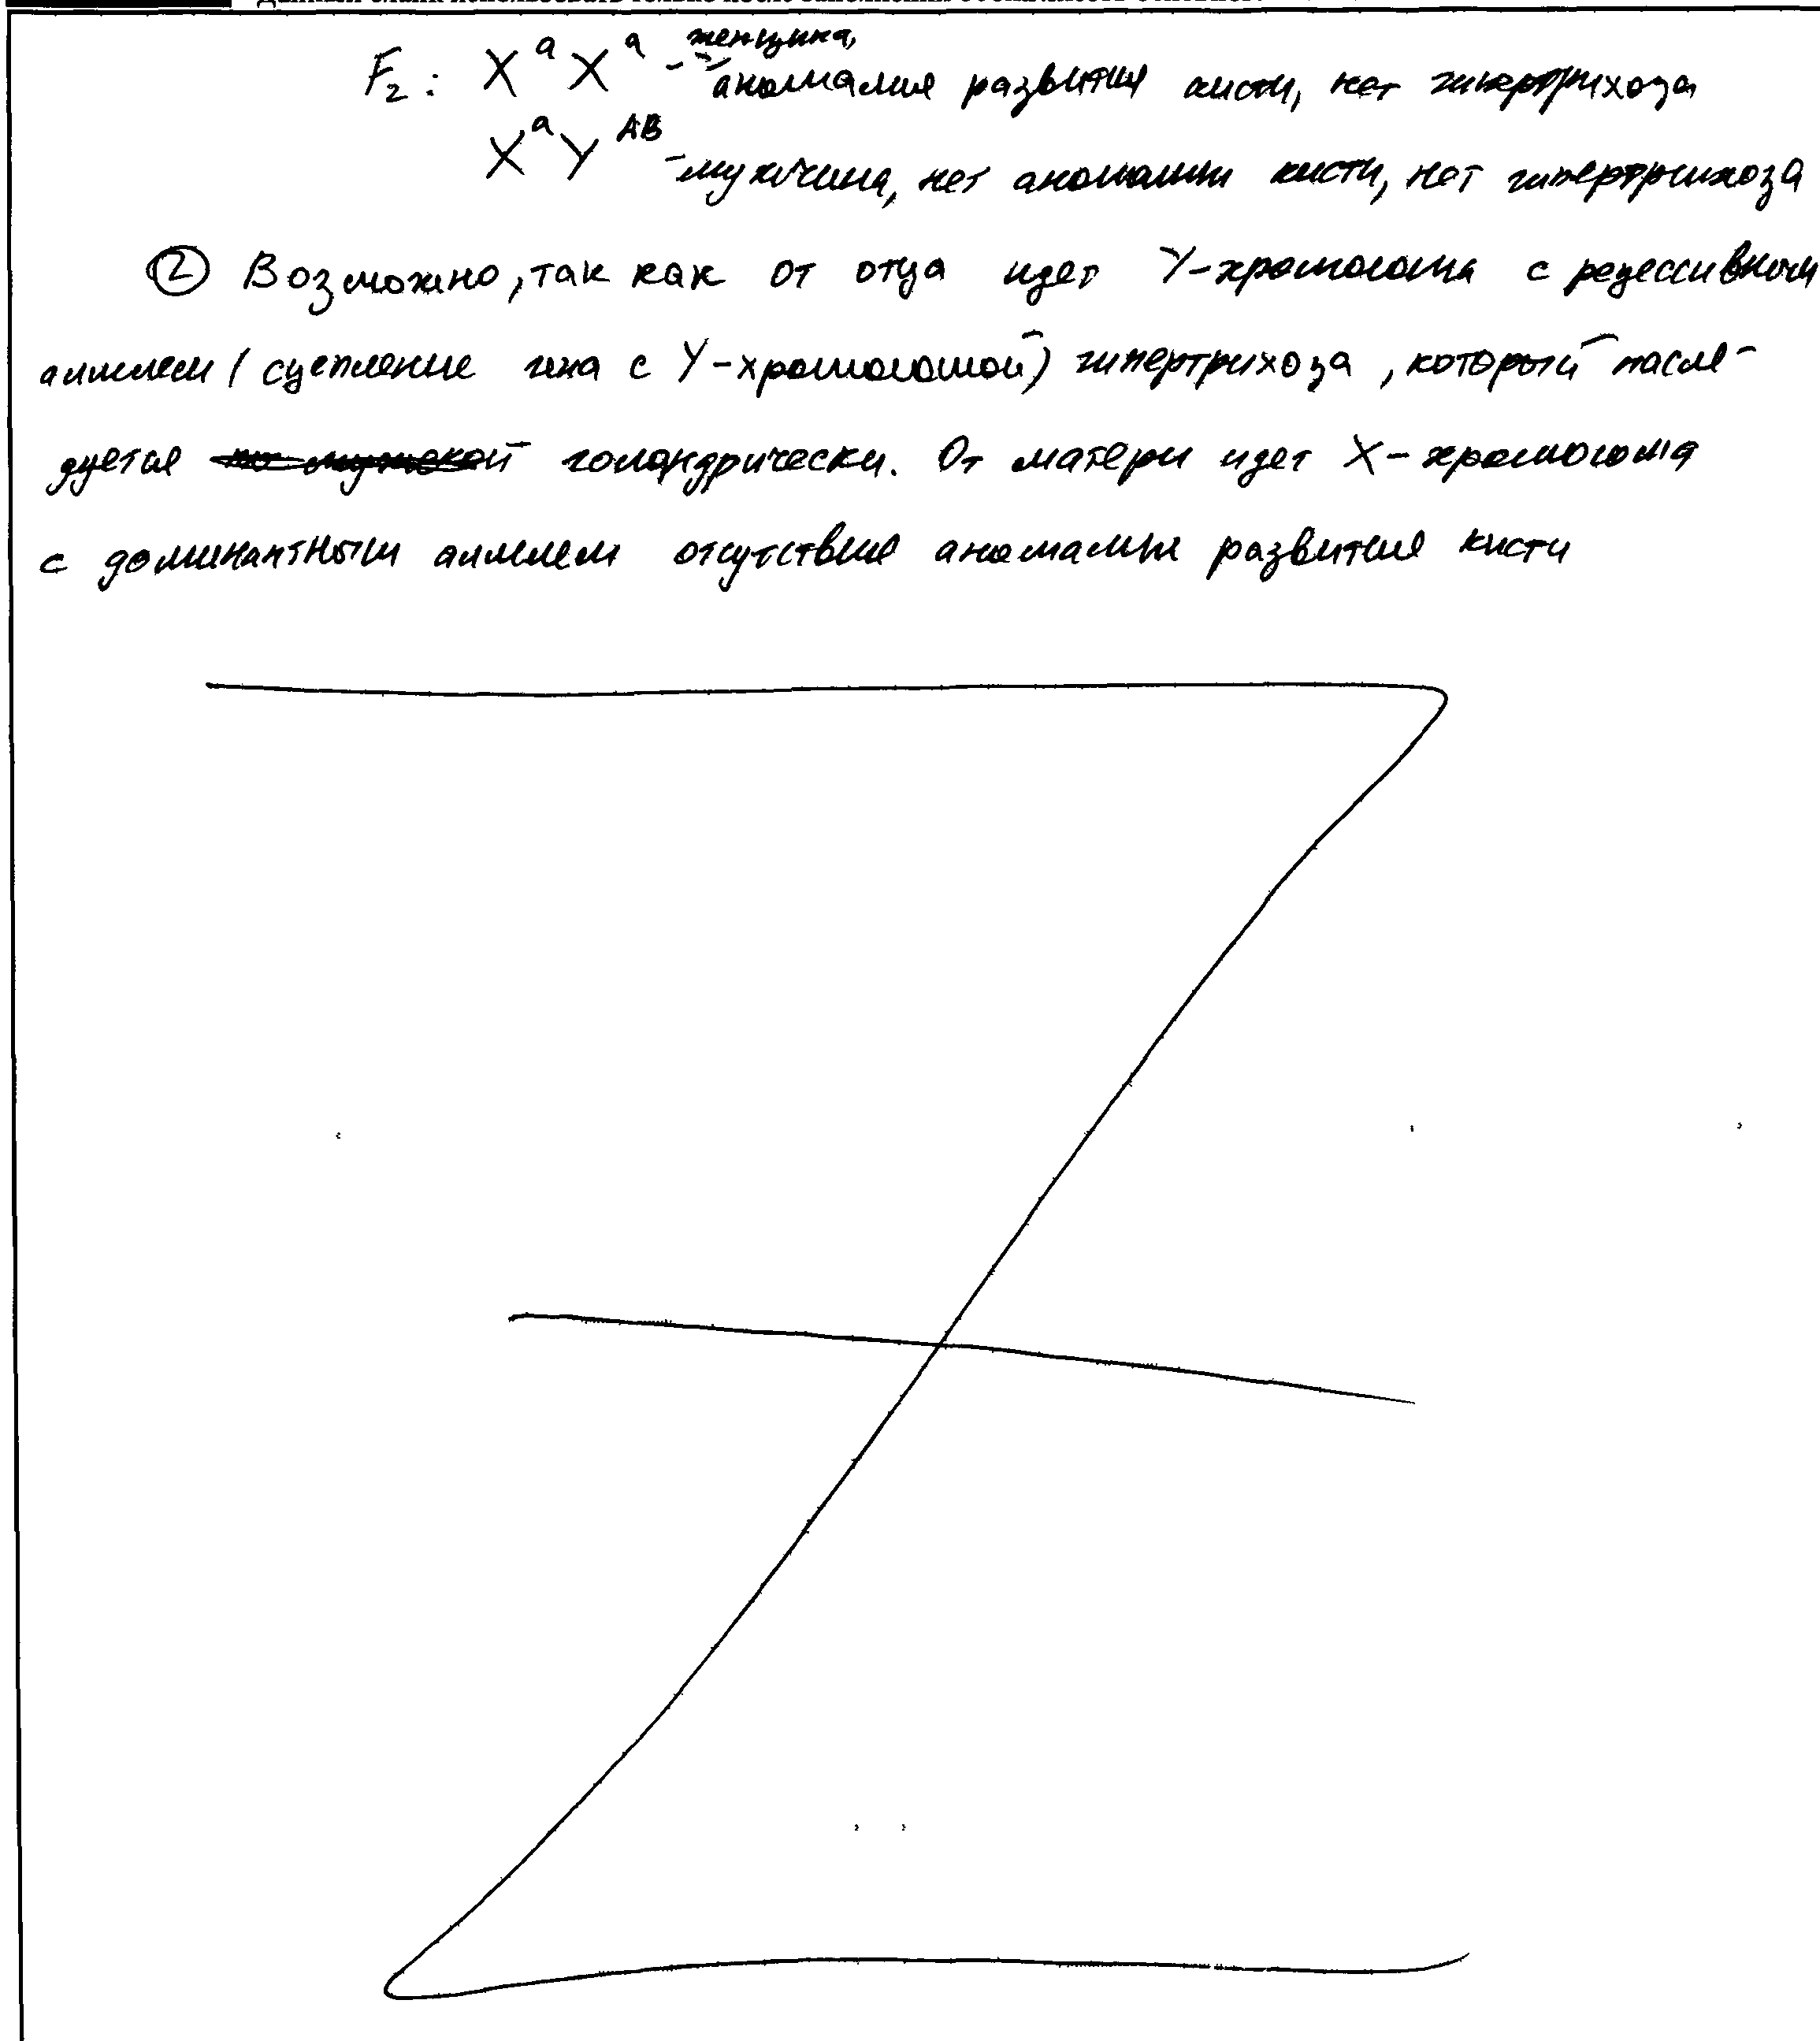 F₂: XᵃXᵃ - женщина,
аномалия развития кисти, нет гипертрихоза
XᵃYᴬᴮ - мужчина, нет аномалии кисти, нет гипертрихоза
② Возможно, так как от отца идет Y-хромосома с рецессивным
аллелем (сцепление гена с Y-хромосомой) гипертрихоза, который насле-
дуется голандрически. От матери идет X-хромосома
с доминантным аллелем отсутствие аномалии развития кисти